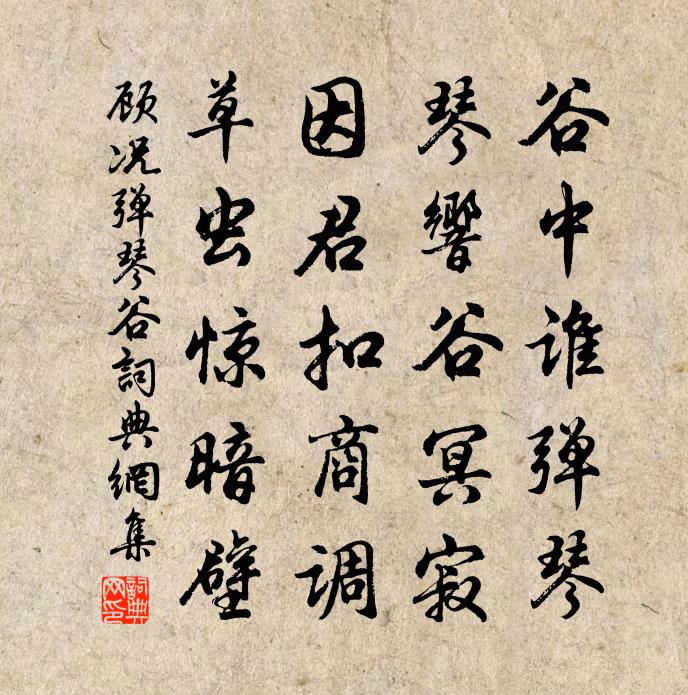 谷中谁弹琴
琴響谷冥寂
因君扣商调
草虫惊暗壁
顾况弹琴谷詞典網集
詞典網印